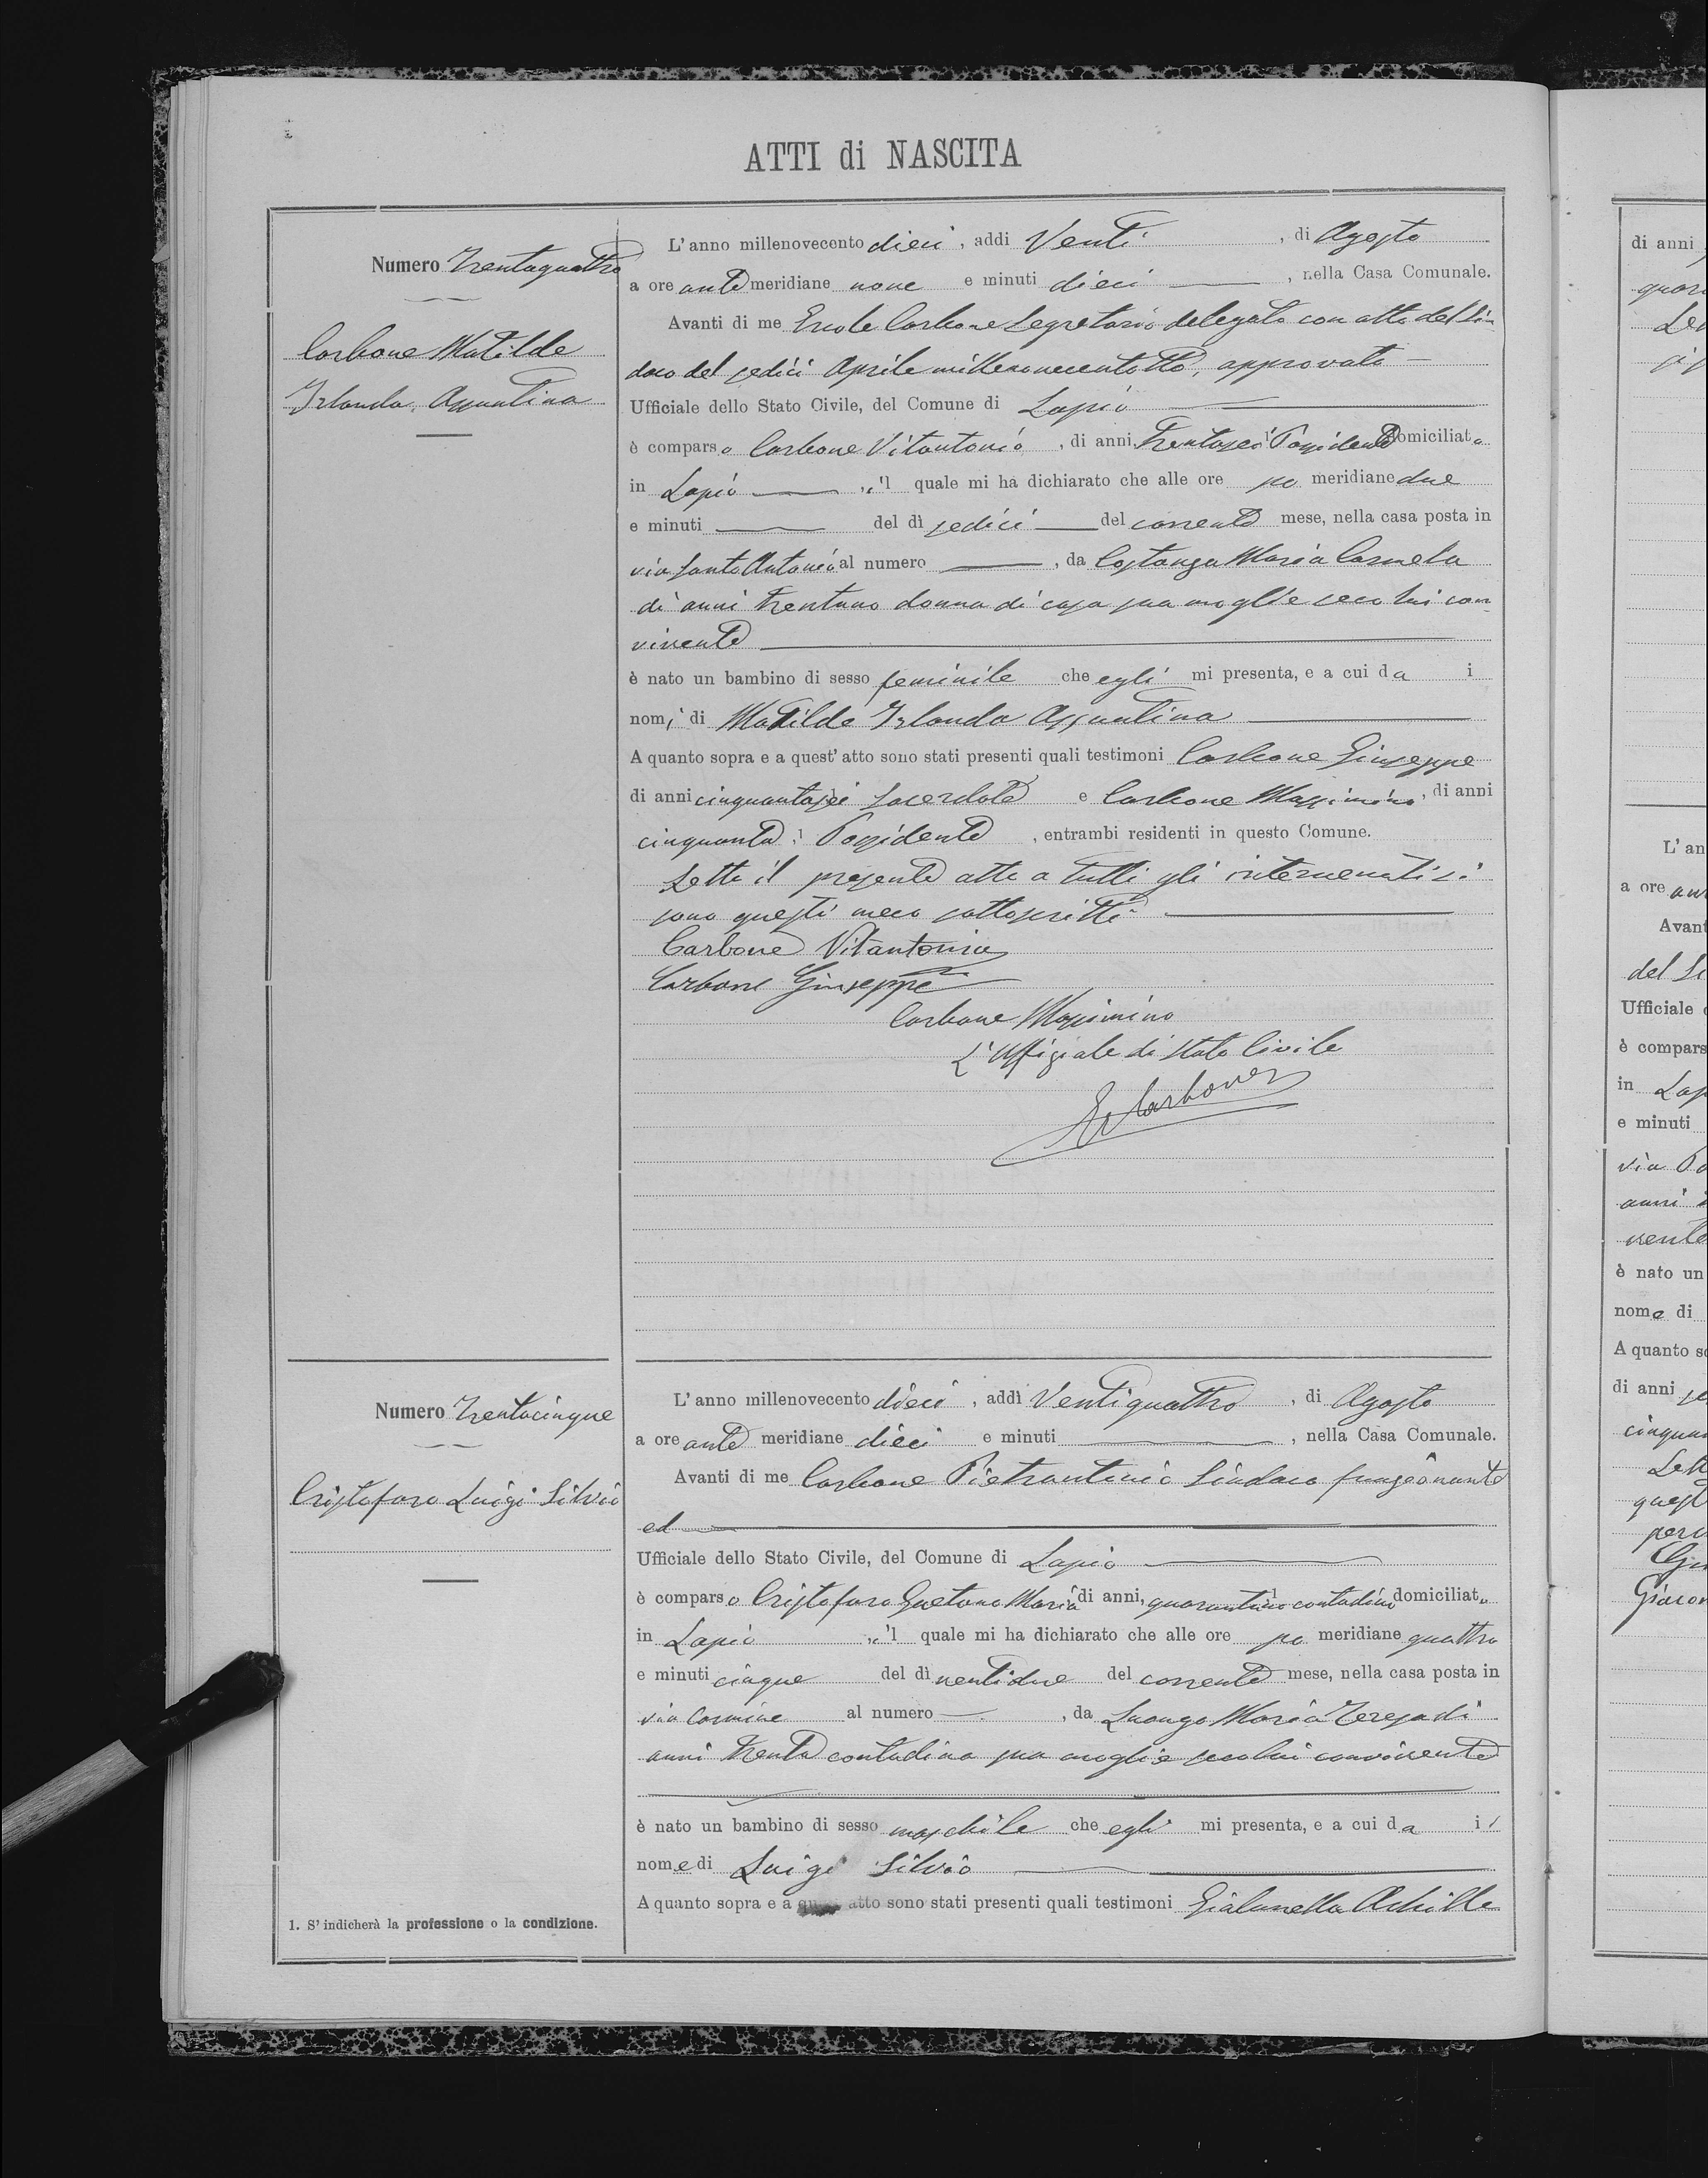 ATTI di NASCITA
Numero Trentaquattro
Carbone Matilde
Irlanda, Assuntina
L'anno millenovecento dieci, addi Venti, di Agosto
a ore ante meridiane nove e minuti dieci, nella Casa Comunale.
Avanti di me Ercole Carbone Segretario delegato con atto del Sin
daco del sedici Aprile millenovecentotto, approvato
Ufficiale dello Stato Civile, del Comune di Lapio
è comparso Carbone Vitantonio, di anni Trentasei Possidente domiciliato
in Lapio, il quale mi ha dichiarato che alle ore po meridiane due
e minuti del dì sedici del corrente mese, nella casa posta in
via Santo Antonio al numero, da Costanza Maria Carmela
di anni trentuno donna di casa sua moglie seco lui con
vivente
è nato un bambino di sesso feminile che egli mi presenta, e a cui da i
nomi di Matilde Irlanda Assuntina
A quanto sopra e a quest'atto sono stati presenti quali testimoni Carbone Giuseppe
di anni cinquantasei Sacerdote e Carbone Massimino, di anni
cinquanta Possidente, entrambi residenti in questo Comune.
Letto il presente atto a tutti gli intervenuti si
sono questi meco sottoscritti
Carbone Vitantonio
Carbone Giuseppe
Carbone Massimino
L'Uffiziale di Stato Civile
E. Carbone
Numero Trentacinque
Cristofaro Luigi Silvio
L'anno millenovecento dieci, addì Ventiquattro, di Agosto
a ore ante meridiane dieci e minuti, nella Casa Comunale.
Avanti di me Carbone Pietrantonio Sindaco funzionante
ed
Ufficiale dello Stato Civile, del Comune di Lapio
è comparso Cristofaro Gaetano Maria di anni, quarantuno contadino domiciliato
in Lapio, il quale mi ha dichiarato che alle ore po meridiane quattro
e minuti cinque del dì ventidue del corrente mese, nella casa posta in
via Carmine al numero, da Luongo Maria Teresa di
anni trenta contadina sua moglie seco lui convivente
è nato un bambino di sesso maschile che egli mi presenta, e a cui da il
nome di Luigi Silvio
A quanto sopra e a quest'atto sono stati presenti quali testimoni Gialanella Achille
1. S'indicherà la professione o la condizione.
di anni
L'an
a ore
Avant
del
Ufficiale
è compars
in Lap
e minuti
via
anni
vente
è nato un
nome di
A quanto so
di anni